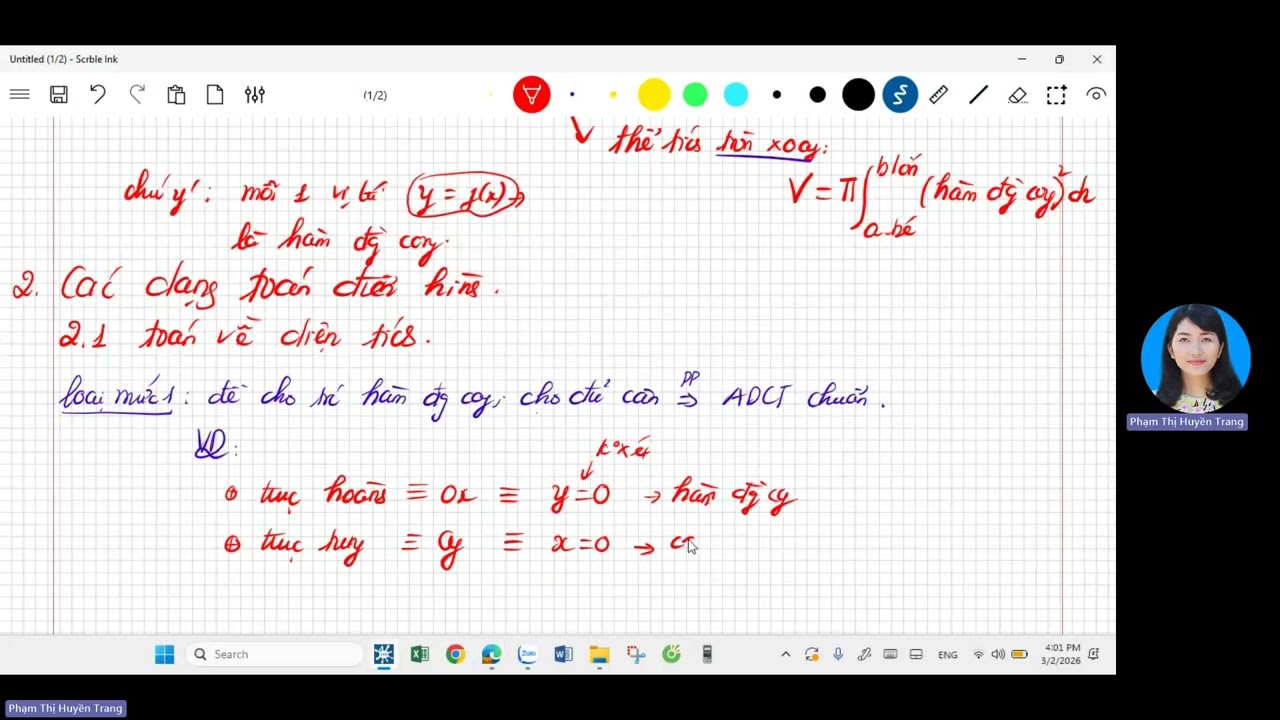 Untitled (1/2) - Scrble Ink
(1/2)
V thể tích tròn xoay:
V = π∫ b lớn a bé (hàm đg cong)² dx
chú ý: mỗi 1 vị trí y = f(x)
là hàm đg cong.
2. Các dạng toán điển hình.
2.1 toán về diện tích.
loại mức 1: đề cho hàm đg cong, cho đủ cận PP ⇒ ADCT chuẩn.
VD:
⊕ trục hoành ≡ Ox ≡ y=0 → hàm đg cg
⊕ trục tung ≡ Oy ≡ x=0 → cậ
Search
Zalo
ENG
4:01 PM
3/2/2026
Phạm Thị Huyền Trang
Phạm Thị Huyền Trang